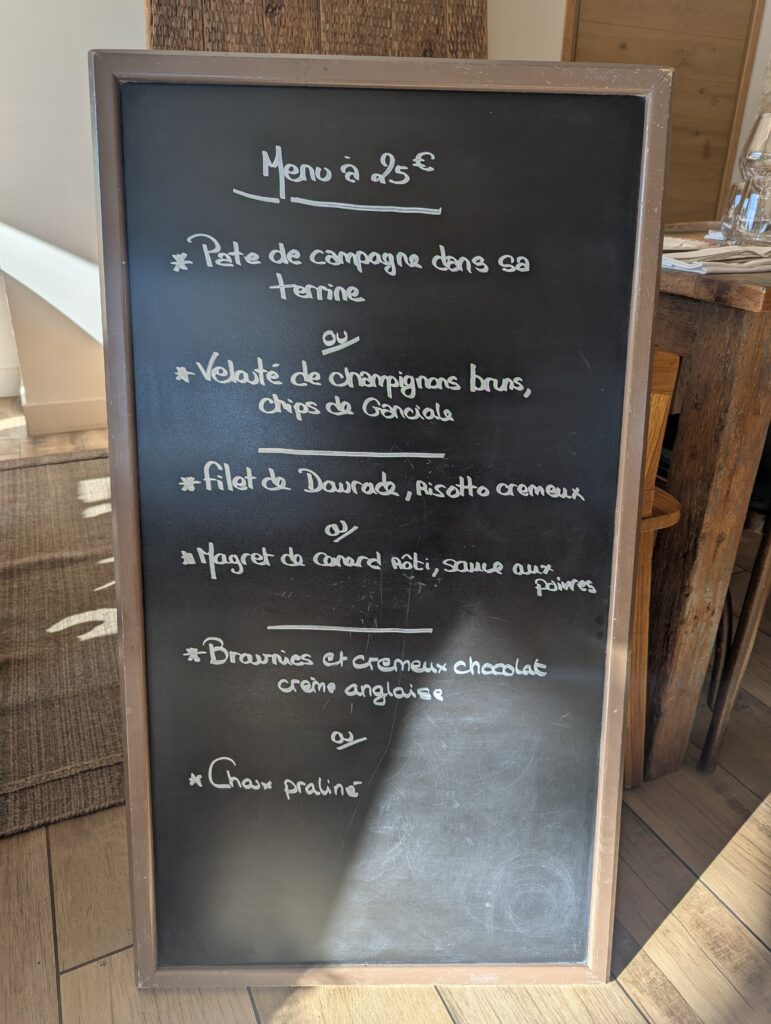 Menu à 25€
* Pate de campagne dans sa
terrine
ou
* Velouté de champignons bruns,
chips de Ganciale
* filet de Daurade, Risotto cremeux
ou
* Magret de canard Rôti, sauce aux
poivres
* Brownies et cremeux chocolat
crème anglaise
ou
* Choux praliné